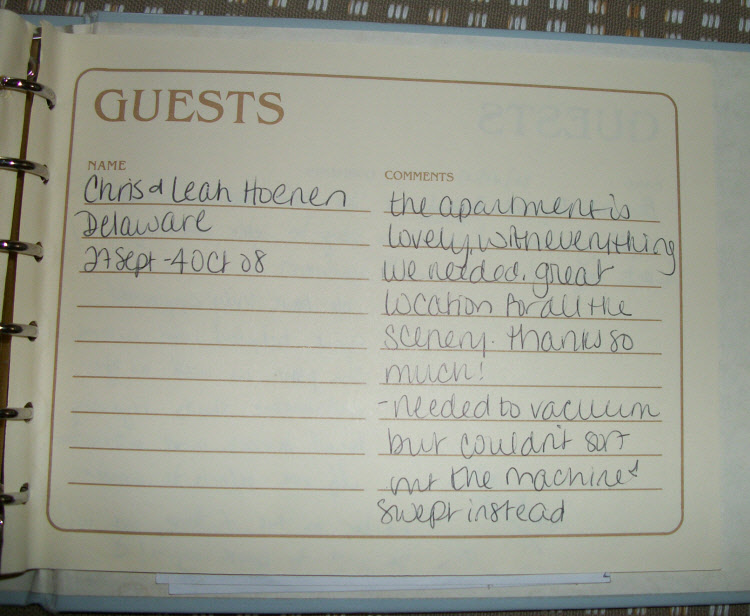 GUESTS
NAME
Chris & Leah Hoenen
Delaware
27 Sept - 4 Oct 08
COMMENTS
the apartment is
lovely, with everything
we needed. great
location for all the
scenery. thanks so
much!
- needed to vacuum
but couldn't sort
out the machine &
swept instead